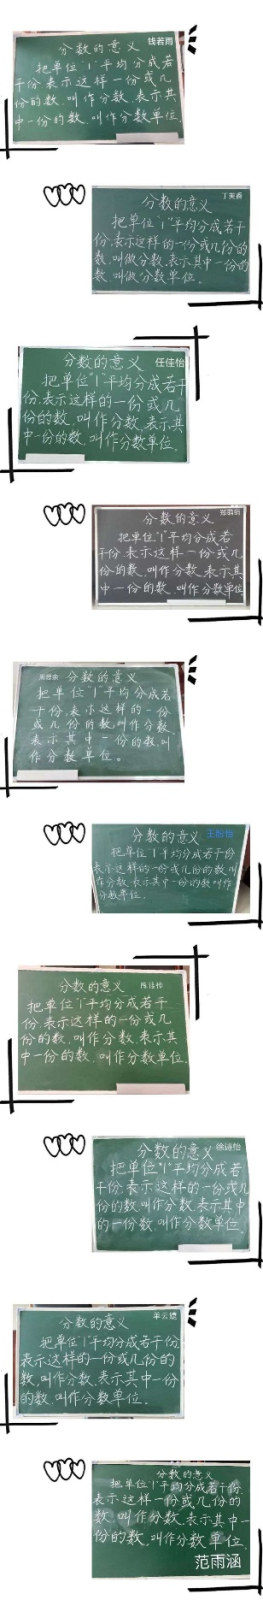 分数的意义 钱若雨
把单位"1"平均分成若
干份,表示这样一份或几
份的数,叫作分数,表示其
中一份的数,叫作分数单位
分数的意义
把单位"1"平均分成若干
份,表示这样的一份或几份的
数,叫做分数,表示其中一份的
数,叫做分数单位。
分数的意义 任佳怡
把单位"1"平均分成若干
份,表示这样的一份或几
份的数,叫作分数,表示其
中一份的数,叫作分数单位.
分数的意义
把单位"1"平均分成若
干份,表示这样一份或几
份的数,叫作分数,表示其
中一份的数,叫作分数单位
分数的意义
把单位"1"平均分成若
干份,表示这样的一份
或几份的数,叫作分数,
表示其中一份的数,叫
作分数单位。
分数的意义
把单位"1"平均分成若干份
表示这样的一份或几份的数叫
作分数,表示其中一份的数叫作
分数单位.
分数的意义 陈佳怡
把单位"1"平均分成若干
份,表示这样的一份或几
份的数,叫作分数,表示其
中一份的数,叫作分数单位.
分数的意义 徐诗怡
把单位"1"平均分成若
干份,表示这样的一份或几
份的数,叫作分数,表示其中
的一份数,叫作分数单位
分数的意义
把单位"1"平均分成若干份,
表示这样的一份或几份的
数,叫作分数,表示其中一份
的数,叫作分数单位.
分数的意义
把单位"1"平均分成若干份,
表示这样一份或几份的
数,叫作分数,表示其中一
份的数,叫作分数单位.
范雨涵